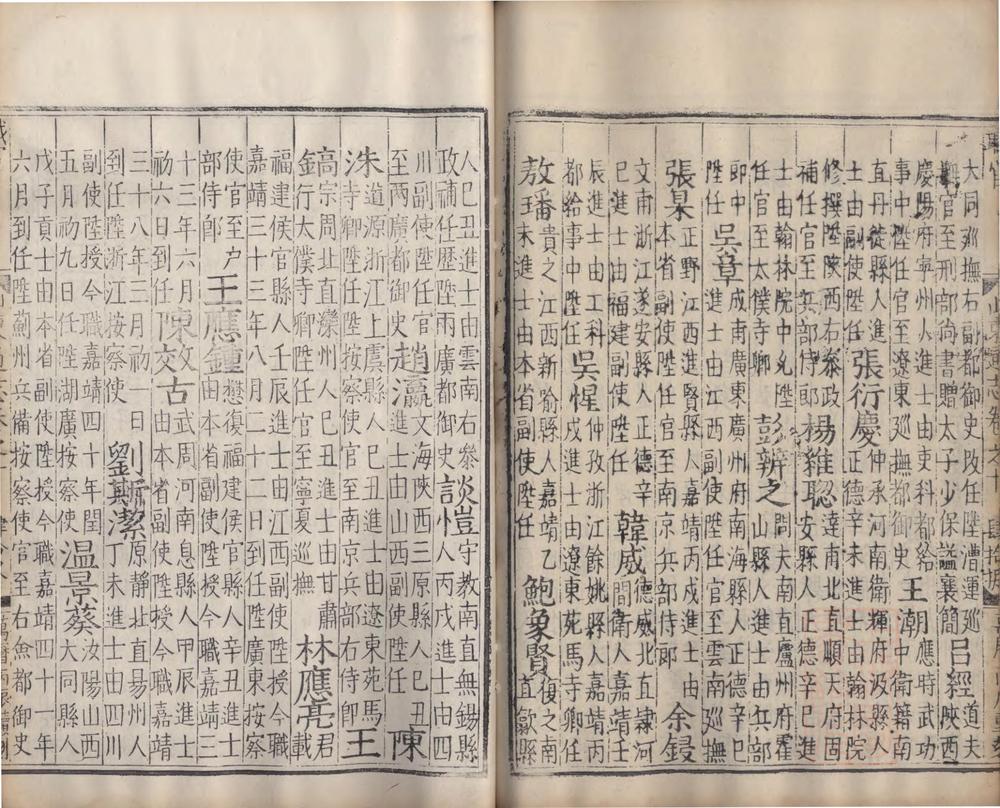 大同廵撫右副都御史改任陞漕運廵
撫官至刑部尚書贈太子少保謚襄簡
呂經
道夫
陝西
慶陽府寧州人進士由吏科都給
事中陞任官至遼東廵撫都御史
王潮
應時武功
中衛籍南
直丹徒縣人進
士由副使陞任
張衍慶
仲承河南衛輝府汲縣人
正德辛未進士由翰林院
修撰陞陝西右叅政
補任官至兵部侍郎
楊維聦
達甫北直順天府固
安縣人正德辛巳進
士由翰林院中允陞
任官至太僕寺卿
彭辨之
問夫南直廬州府霍
山縣人進士由兵部
郎中
陞任
吳章
成甫廣東廣州府南海縣人正德辛巳
進士由江西副使陞任官至雲南廵撫
張杲
正野江西進賢縣人嘉靖丙戌進士由
本省副使陞任官至南京兵部侍郎
余鋟
文甫浙江遂安縣人正德辛
巳進士由福建副使陞任
韓威
德威北直隸河
間衛人嘉靖壬
辰進士由工科
都給事中陞任
吳惺
仲政浙江餘姚縣人嘉靖丙
戌進士由遼東苑馬寺卿任
敖璠
貴之江西新喻縣人嘉靖乙
未進士由本省副使陞任
鮑象賢
復之南
直歙縣
人己丑進士由雲南右叅
政補任歷陞兩廣都御史
談愷
守教南直無錫縣
人丙戌進士由四
川副使陞任官
至兩廣都御史
趙瀛
文海陝西三原縣人己丑
進士由山西副使陞任
陳
洙
道源浙江上虞縣人己丑進士由遼東苑馬
寺卿陞任陞按察使官至南京兵部右侍郎
王
鎬
宗周北直灤州人己丑進士由甘肅
行太僕寺卿陞任官至寧夏廵撫
林應亮
君
載
福建侯官縣人壬辰進士由江西副使陞授今職
嘉靖三十三年八月二十二日到任陞廣東按察
使官至戶
部侍郎
王應鍾
懋復福建侯官縣人辛丑進士
由本省副使陞授今職嘉靖三
十三年六月
初六日到任
陳效古
武周河南息縣人甲辰進士
由本省副使陞授今職嘉靖
三十八年三月初一日
到任陞浙江按察使
劉斯潔
原靜北直易州
丁未進士由四川
副使陞授今職嘉靖四十年閏
五月初九日任陞湖廣按察使
溫景葵
汝陽山西
大同縣人
戊子貢士由本省副使陞授今職嘉靖四十一年
六月到任陞薊州兵備按察使官至右僉都御史